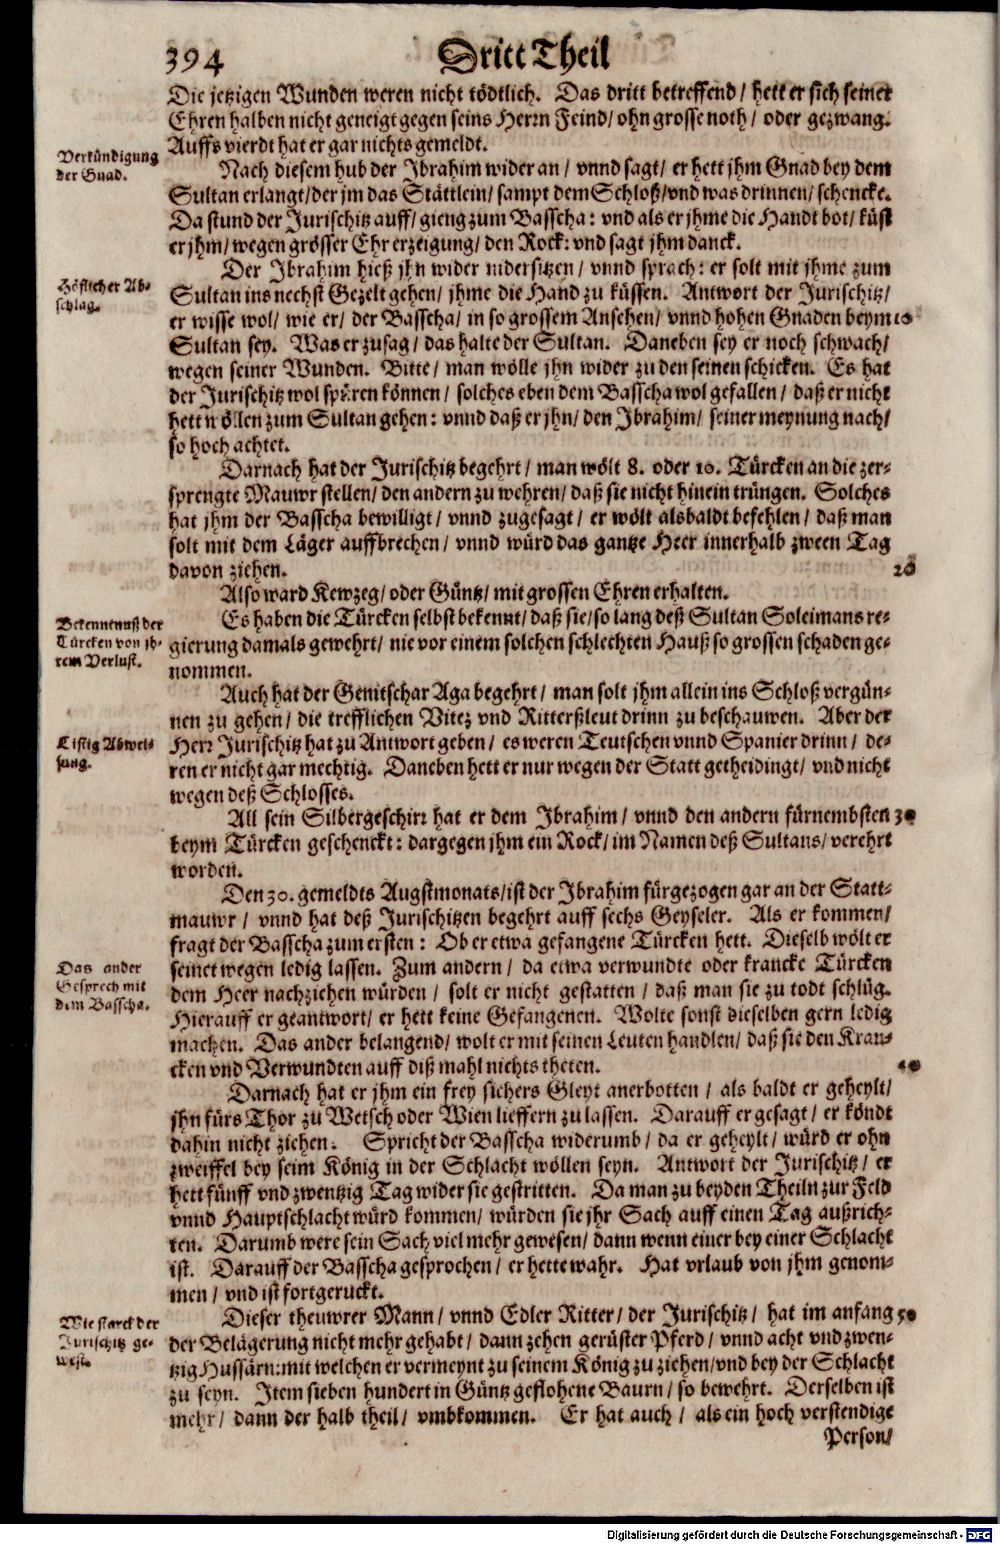 394
Dritt Theil
Die jetzigen Wunden weren nicht tödtlich. Das dritt betreffend / hett er sich seiner
Ehren halben nicht geneigt gegen seins Herrn Feind / ohn grosse noth / oder gezwang.
Auffs vierdt hat er gar nichts gemeldt.
Verkündigung
der Gnad.
Nach diesem hub der Ibrahim wider an / vnnd sagt / er hett jhm Gnad bey dem
Sultan erlangt / der jm das Stättlein / sampt dem Schloß / vnd was drinnen / schencke.
Da stund der Jurischitz auff / gieng zum Basscha: vnd als er jhme die Handt bot / küst
er jhm / wegen grösser Ehrerzeigung / den Rock: vnd sagt jhm danck.
Höflicher Ab-
schlag.
Der Ibrahim hieß jhn wider nidersitzen / vnnd sprach: er solt mit jhme zum
Sultan ins nechst Gezelt gehen / jhme die Hand zu küssen. Antwort der Jurischitz /
er wisse wol / wie er / der Basscha / in so grossem Ansehen / vnnd hohen Gnaden beym 10
Sultan sey. Was er zusag / das halte der Sultan. Daneben sey er noch schwach /
wegen seiner Wunden. Bitte / man wölle jhn wider zu den seinen schicken. Es hat
der Jurischitz wol spüren können / solches eben dem Basscha wol gefallen / daß er nicht
hett wöllen zum Sultan gehen: vnnd daß er jhn / den Ibrahim / seiner meynung nach /
so hoch achtet.
Darnach hat der Jurischitz begehrt / man wölt 8. oder 10. Türcken an die zer-
sprengte Mauwr stellen / den andern zu wehren / daß sie nicht hinein trüngen. Solches
hat jhm der Basscha bewilligt / vnnd zugesagt / er wölt alsbaldt befehlen / daß man
solt mit dem Läger auffbrechen / vnnd würd das gantze Heer innerhalb zween Tag
davon ziehen. 20
Also ward Kewzeg / oder Güntz / mit grossen Ehren erhalten.
Bekenntnuß der
Türcken von jh-
rem Verlust.
Es haben die Türcken selbst bekennt / daß sie / so lang deß Sultan Soleimans re-
gierung damals gewehrt / nie vor einem solchen schlechten Hauß so grossen schaden ge-
nommen.
Auch hat der Genitschar Aga begehrt / man solt jhm allein ins Schloß vergün-
nen zu gehen / die trefflichen Vitez vnd Rittersßleut drinn zu beschauwen. Aber der
Listig Abwei-
sung.
Herr Jurischitz hat zu Antwort geben / es weren Teutschen vnnd Spanier drinn / de-
ren er nicht gar mechtig. Daneben hett er nur wegen der Statt getheidingt / vnd nicht
wegen deß Schlosses.
All sein Silbergeschirr hat er dem Ibrahim / vnnd den andern fürnembsten 30
beym Türcken geschenckt: dargegen jhm ein Rock / im Namen deß Sultans / verehrt
worden.
Den 30. gemeldts Augstmonats / ist der Ibrahim fürgezogen gar an der Statt-
mauwr / vnnd hat deß Jurischitzen begehrt auff sechs Geyseler. Als er kommen /
fragt der Basscha zum ersten: Ob er etwa gefangene Türcken hett. Dieselb wölt er
Das ander
Gesprech mit
dem Basscha.
seinet wegen ledig lassen. Zum andern / da etwa verwundte oder krancke Türcken
dem Heer nachziehen würden / solt er nicht gestatten / daß man sie zu todt schlüg.
Hierauff er geantwort / er hett keine Gefangenen. Wolte sonst dieselben gern ledig
machen. Das ander belangend / wolt er mit seinen Leuten handlen / daß sie den Kran-
cken vnd Verwundten auff diß mahl nichts theten. 40
Darnach hat er jhm ein frey sichers Gleyt anerbotten / als baldt er geheylt /
jhn fürs Thor zu Wetsch oder Wien lieffern zu lassen. Darauff er gesagt / er köndt
dahin nicht ziehen. Spricht der Basscha widerumb / da er geheylt / würd er ohn
zweiffel bey seim König in der Schlacht wöllen seyn. Antwort der Jurischitz / er
hett fünff vnd zwentzig Tag wider sie gestritten. Da man zu beyden Theiln zur Feld
vnnd Hauptschlacht würd kommen / würden sie jhr Sach auff einen Tag außrich-
ten. Darumb were sein Sach viel mehr gewesen / dann wenn einer bey einer Schlacht
ist. Darauff der Basscha gesprochen / er hette wahr. Hat vrlaub von jhm genom-
men / vnd ist fortgeruckt.
Wie starck der
Jurischitz ge-
west.
Dieser theuwrer Mann / vnnd Edler Ritter / der Jurischitz / hat im anfang 50
der Belägerung nicht mehr gehabt / dann zehen gerüster Pferd / vnnd acht vnd zwen-
tzig Hussärn: mit welchen er vermeynt zu seinem König zu ziehen / vnd bey der Schlacht
zu seyn. Item sieben hundert in Güntz geflohene Baurn / so bewehrt. Derselben ist
mehr / dann der halb theil / vmbkommen. Er hat auch / als ein hoch verstendige
Person /
Digitalisierung gefördert durch die Deutsche Forschungsgemeinschaft - DFG